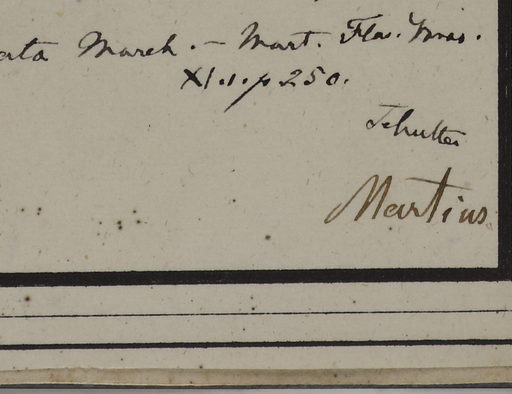 ata March. – Mart. Flor. Bras.
XI.1.p 250.
Schultes
Martius.